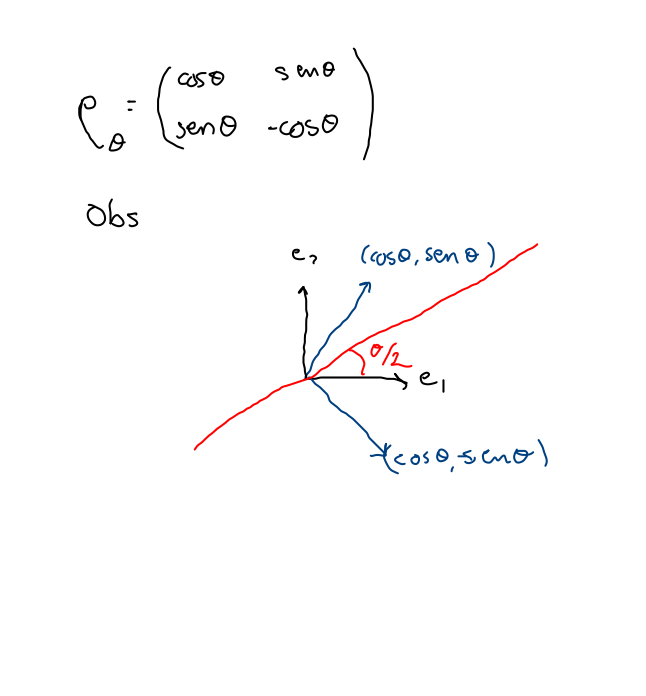 ρ_θ = ( cosθ senθ
senθ -cosθ )
Obs
e₂ (cosθ, senθ)
θ/2
e₁
(cosθ, -senθ)